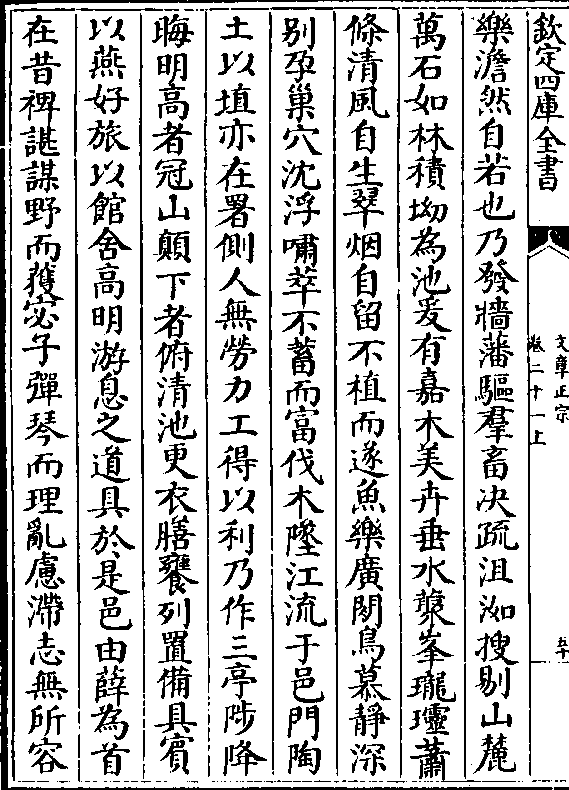 欽定四庫全書
文章正宗
卷二十一上
五十
樂澹然自若也乃發牆藩驅羣畜决疏沮洳搜剔山麓
萬石如林積坳為池爰有嘉木美卉垂水藂峯瓏𤫊蕭
條清風自生翠烟自留不植而遂魚樂廣閒鳥慕靜深
别孕巢穴沈浮嘯萃不蓄而富伐木墜江流于邑門陶
土以埴亦在署側人無勞力工得以利乃作三亭陟降
晦明高者冠山顛下者俯清池更衣膳饔列置備具賓
以燕好旅以館舍高明游息之道具於是邑由薛為首
在昔裨諶謀野而獲宓子彈琴而理亂慮滯志無所容